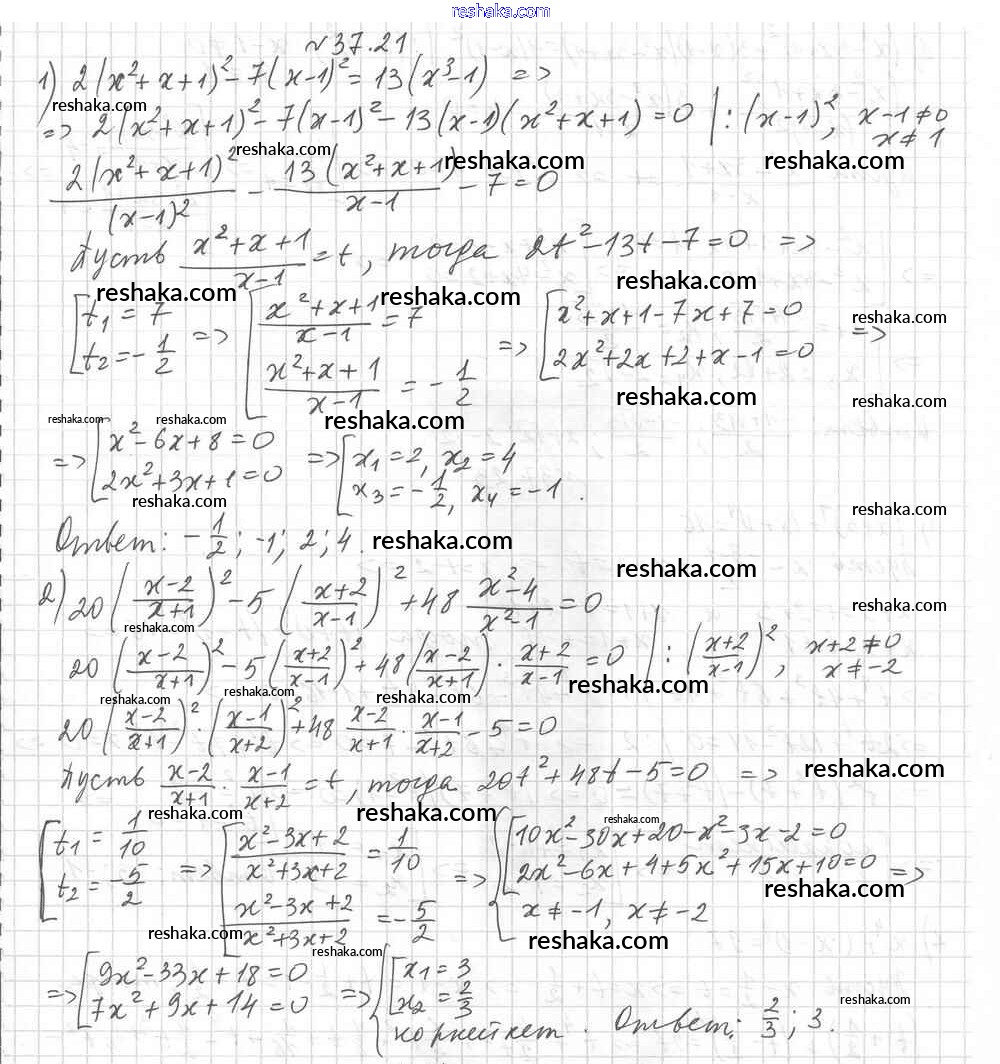 reshaka.com
№37.21.
1) 2(x²+x+1)²-7(x-1)²=13(x³-1) =>
reshaka.com
=> 2(x²+x+1)²-7(x-1)²-13(x-1)(x²+x+1)=0 |:(x-1)², x-1≠0
x≠1
reshaka.com reshaka.com reshaka.com
2(x²+x+1)²/(x-1)² - 13(x²+x+1)/(x-1) - 7=0
Пусть (x²+x+1)/(x-1)=t, тогда 2t²-13t-7=0 =>
reshaka.com reshaka.com reshaka.com
[t₁=7 => [(x²+x+1)/(x-1)=7 => [x²+x+1-7x+7=0 =>
reshaka.com
t₂=-1/2 (x²+x+1)/(x-1)=-1/2 2x²+2x+2+x-1=0
reshaka.com reshaka.com
reshaka.com reshaka.com reshaka.com
=> [x²-6x+8=0 => [x₁=2, x₂=4
2x²+3x+1=0 x₃=-1/2, x₄=-1.
reshaka.com reshaka.com
Ответ: -1/2; -1; 2; 4.
reshaka.com reshaka.com
2) 20((x-2)/(x+1))²-5((x+2)/(x-1))²+48 (x²-4)/(x²-1)=0
reshaka.com reshaka.com
20((x-2)/(x+1))²-5((x+2)/(x-1))²+48((x-2)/(x+1))·(x+2)/(x-1)=0 |:((x+2)/(x-1))², x+2≠0
x≠-2
reshaka.com reshaka.com reshaka.com
20((x-2)/(x+1))²·((x-1)/(x+2))²+48 (x-2)/(x+1)·(x-1)/(x+2)-5=0
Пусть (x-2)/(x+1)·(x-1)/(x+2)=t, тогда 20t²+48t-5=0 =>
reshaka.com
reshaka.com reshaka.com
[t₁=1/10 => [(x²-3x+2)/(x²+3x+2)=1/10 => {[10x²-30x+20-x²-3x-2=0
t₂=-5/2 (x²-3x+2)/(x²+3x+2)=-5/2 2x²-6x+4+5x²+15x+10=0 =>
reshaka.com
x≠-1, x≠-2
reshaka.com reshaka.com reshaka.com
=> [9x²-33x+18=0 => {[x₁=3
7x²+9x+14=0 x₂=2/3
reshaka.com
корней нет. Ответ: 2/3; 3.